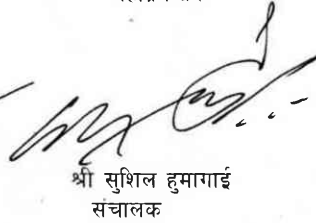 श्री सुशिल हुमागाई
संचालक